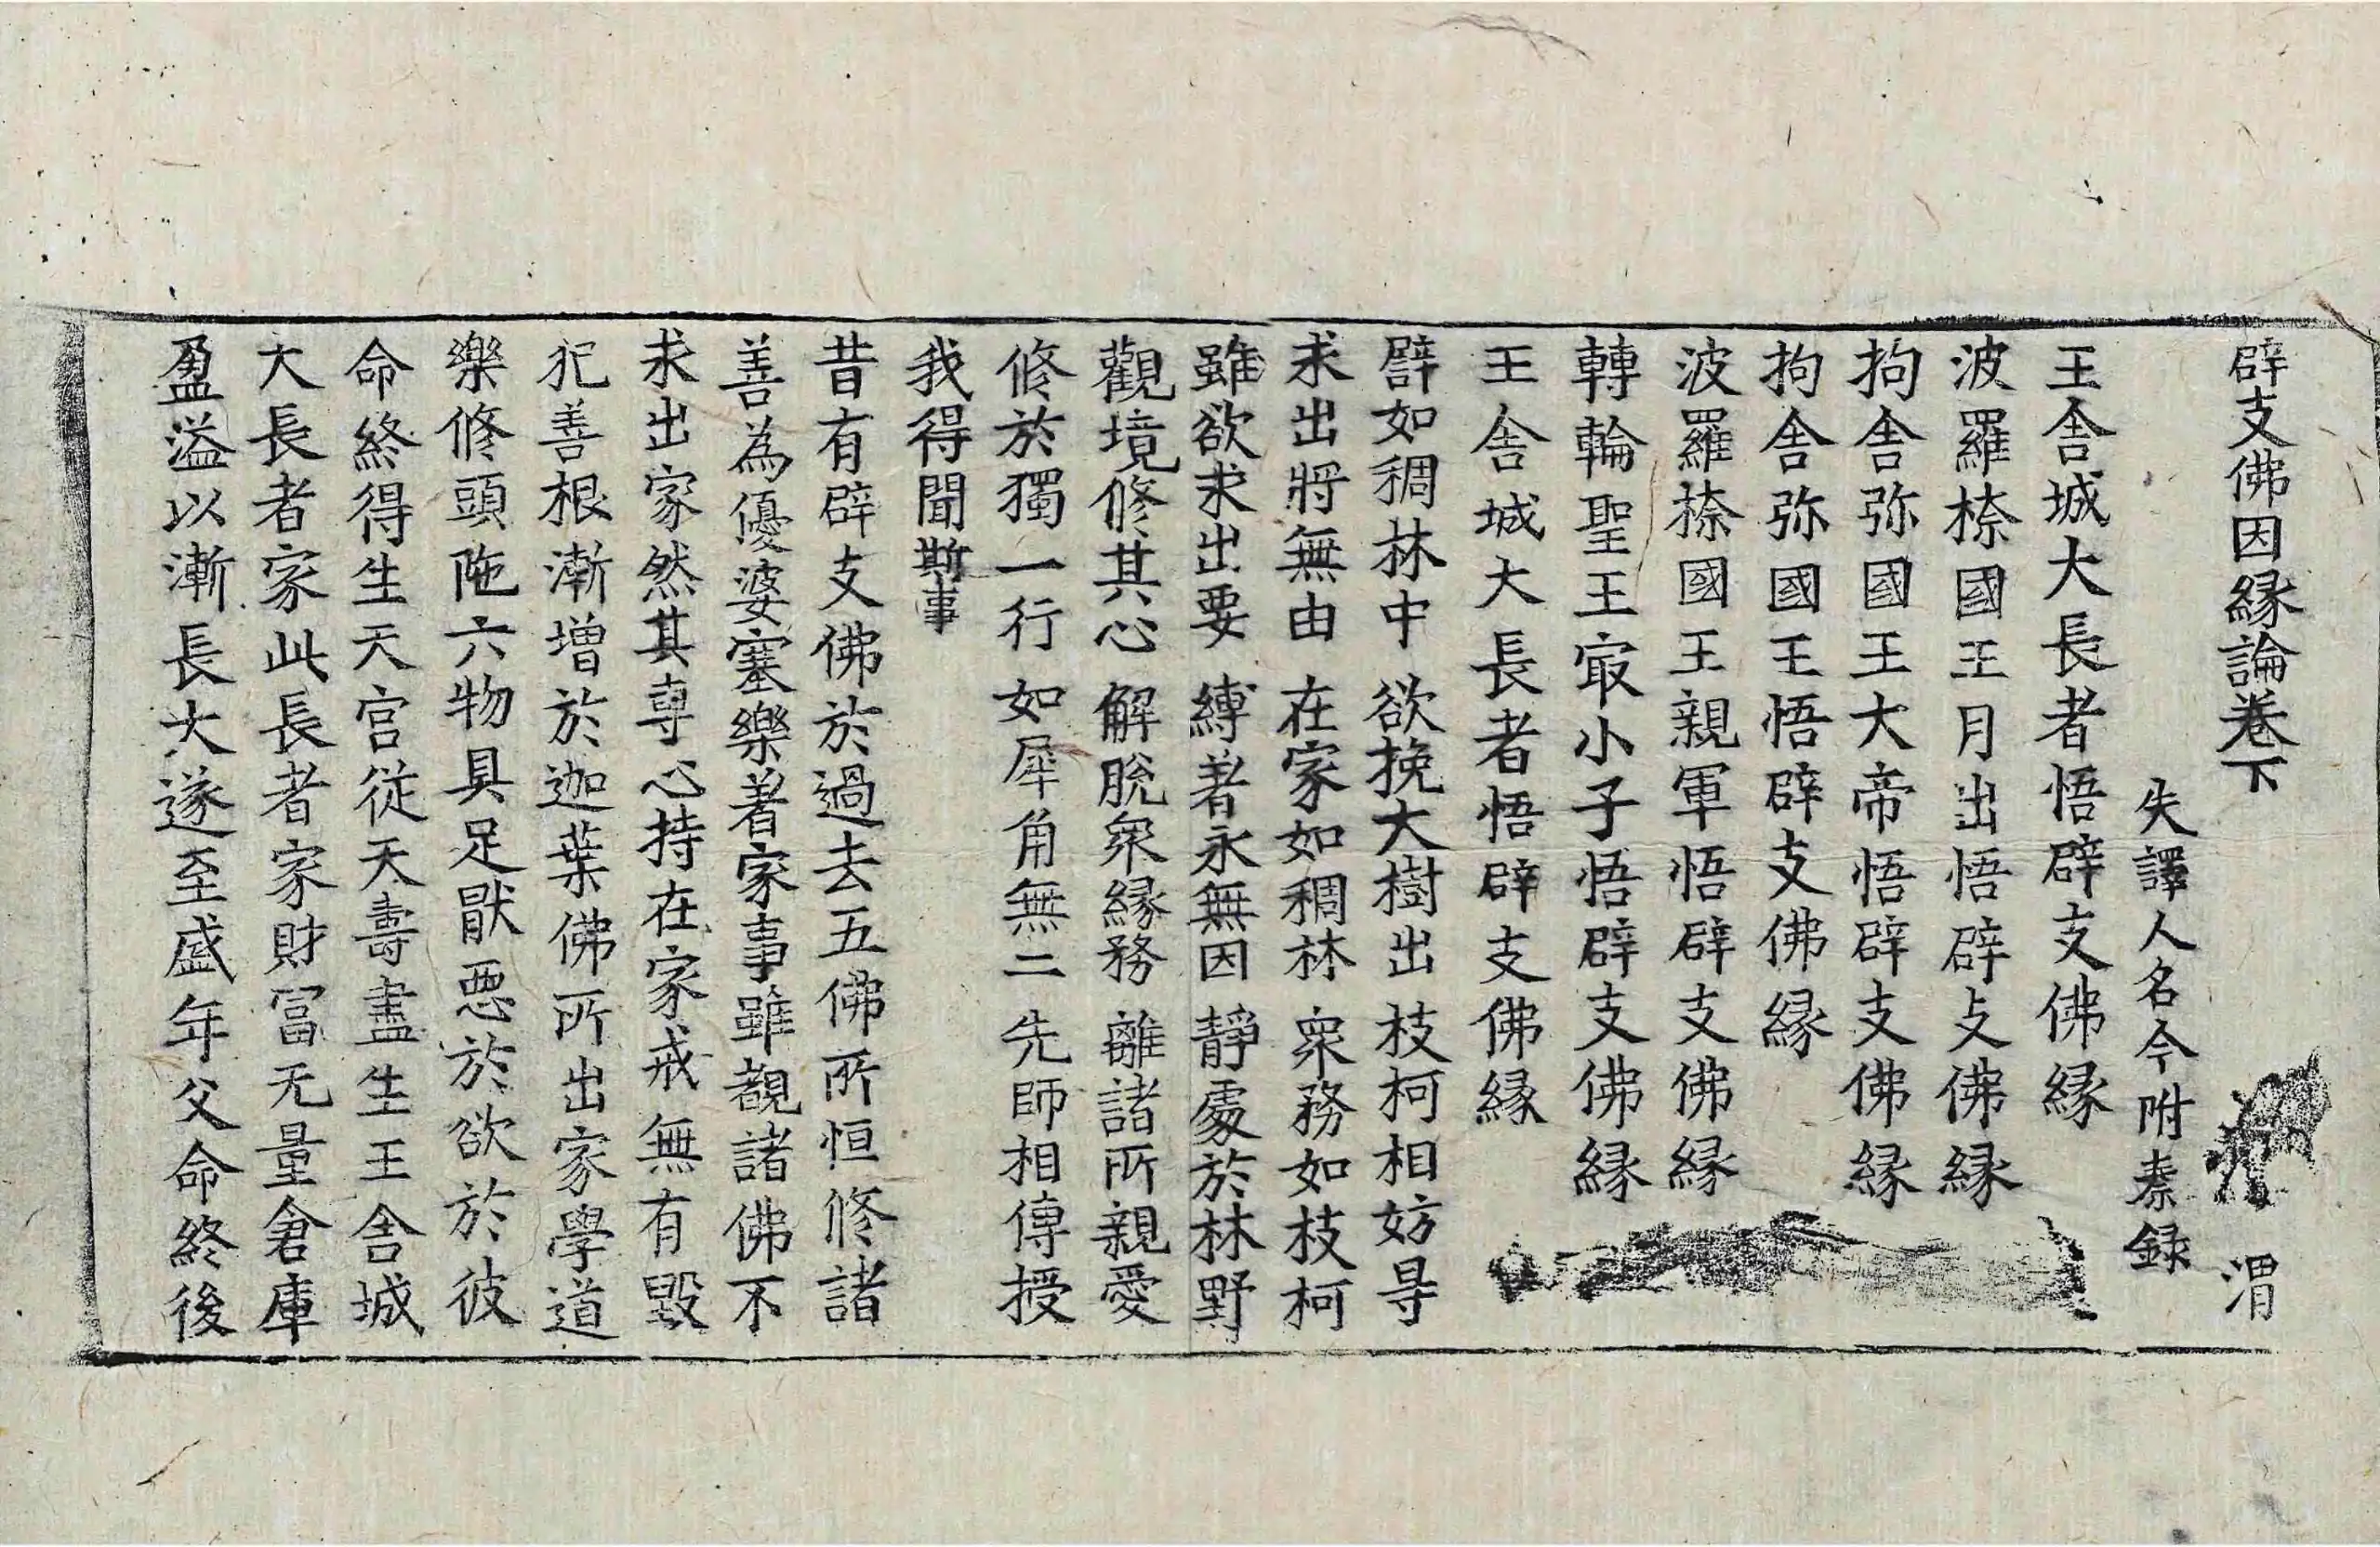 辟支佛因縁論卷下 渭
失譯人名今附秦録
王舎城大長者悟辟支佛縁
波羅㮈國王月出悟辟支佛縁
拘舎弥國王大帝悟辟支佛縁
拘舎弥國王悟辟支佛縁
波羅㮈國王親軍悟辟支佛縁
轉輪聖王㝡小子悟辟支佛縁
王舎城大長者悟辟支佛縁
譬如稠林中 欲挽大樹出 枝柯相妨㝵
求出將無由 在家如稠林 衆務如枝柯
雖欲求出要 縛著永無因 靜處於林野
觀境修其心 解脫衆縁務 離諸所親愛
修於獨一行 如犀角無二 先師相傳授
我得聞斯事
昔有辟支佛於過去五佛所恒修諸
善為優婆塞樂著家事雖覩諸佛不
求出家然其専心持在家戒無有毀
犯善根漸增於迦葉佛所出家學道
樂修頭陁六物具足猒惡於欲於彼
命終得生天宫從天壽盡生王舎城
大長者家此長者家財冨无量倉庫
盈溢以漸長大遂至盛年父命終後